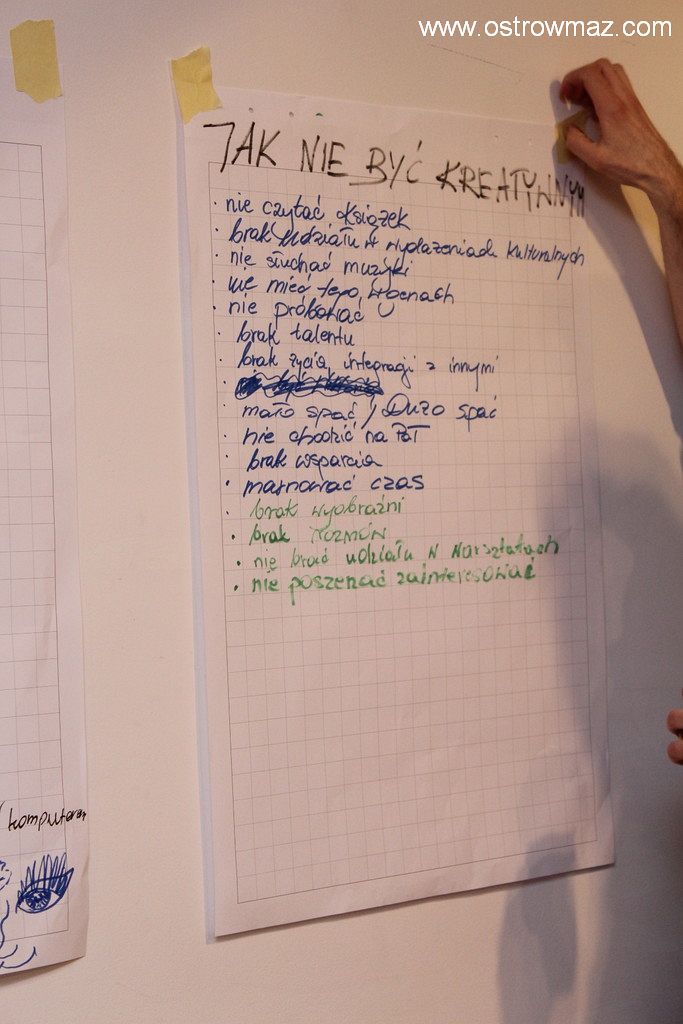 www.ostrowmaz.com
JAK NIE BYĆ KREATYWNYM
· nie czytać książek
· brak udziału w wydażeniach kulturalnych
· nie słuchać muzyki
· nie mieć tego w
· nie próbować
· brak talentu
· brak życia, integracji z innymi
mało spać / Dużo spać
· nie chodzić na
· brak wsparcia
· marnować czas
· brak wyobraźni
· brak rozmów
· nie brać udziału w warsztatach
· nie poszerzać zainteresować
komputerer